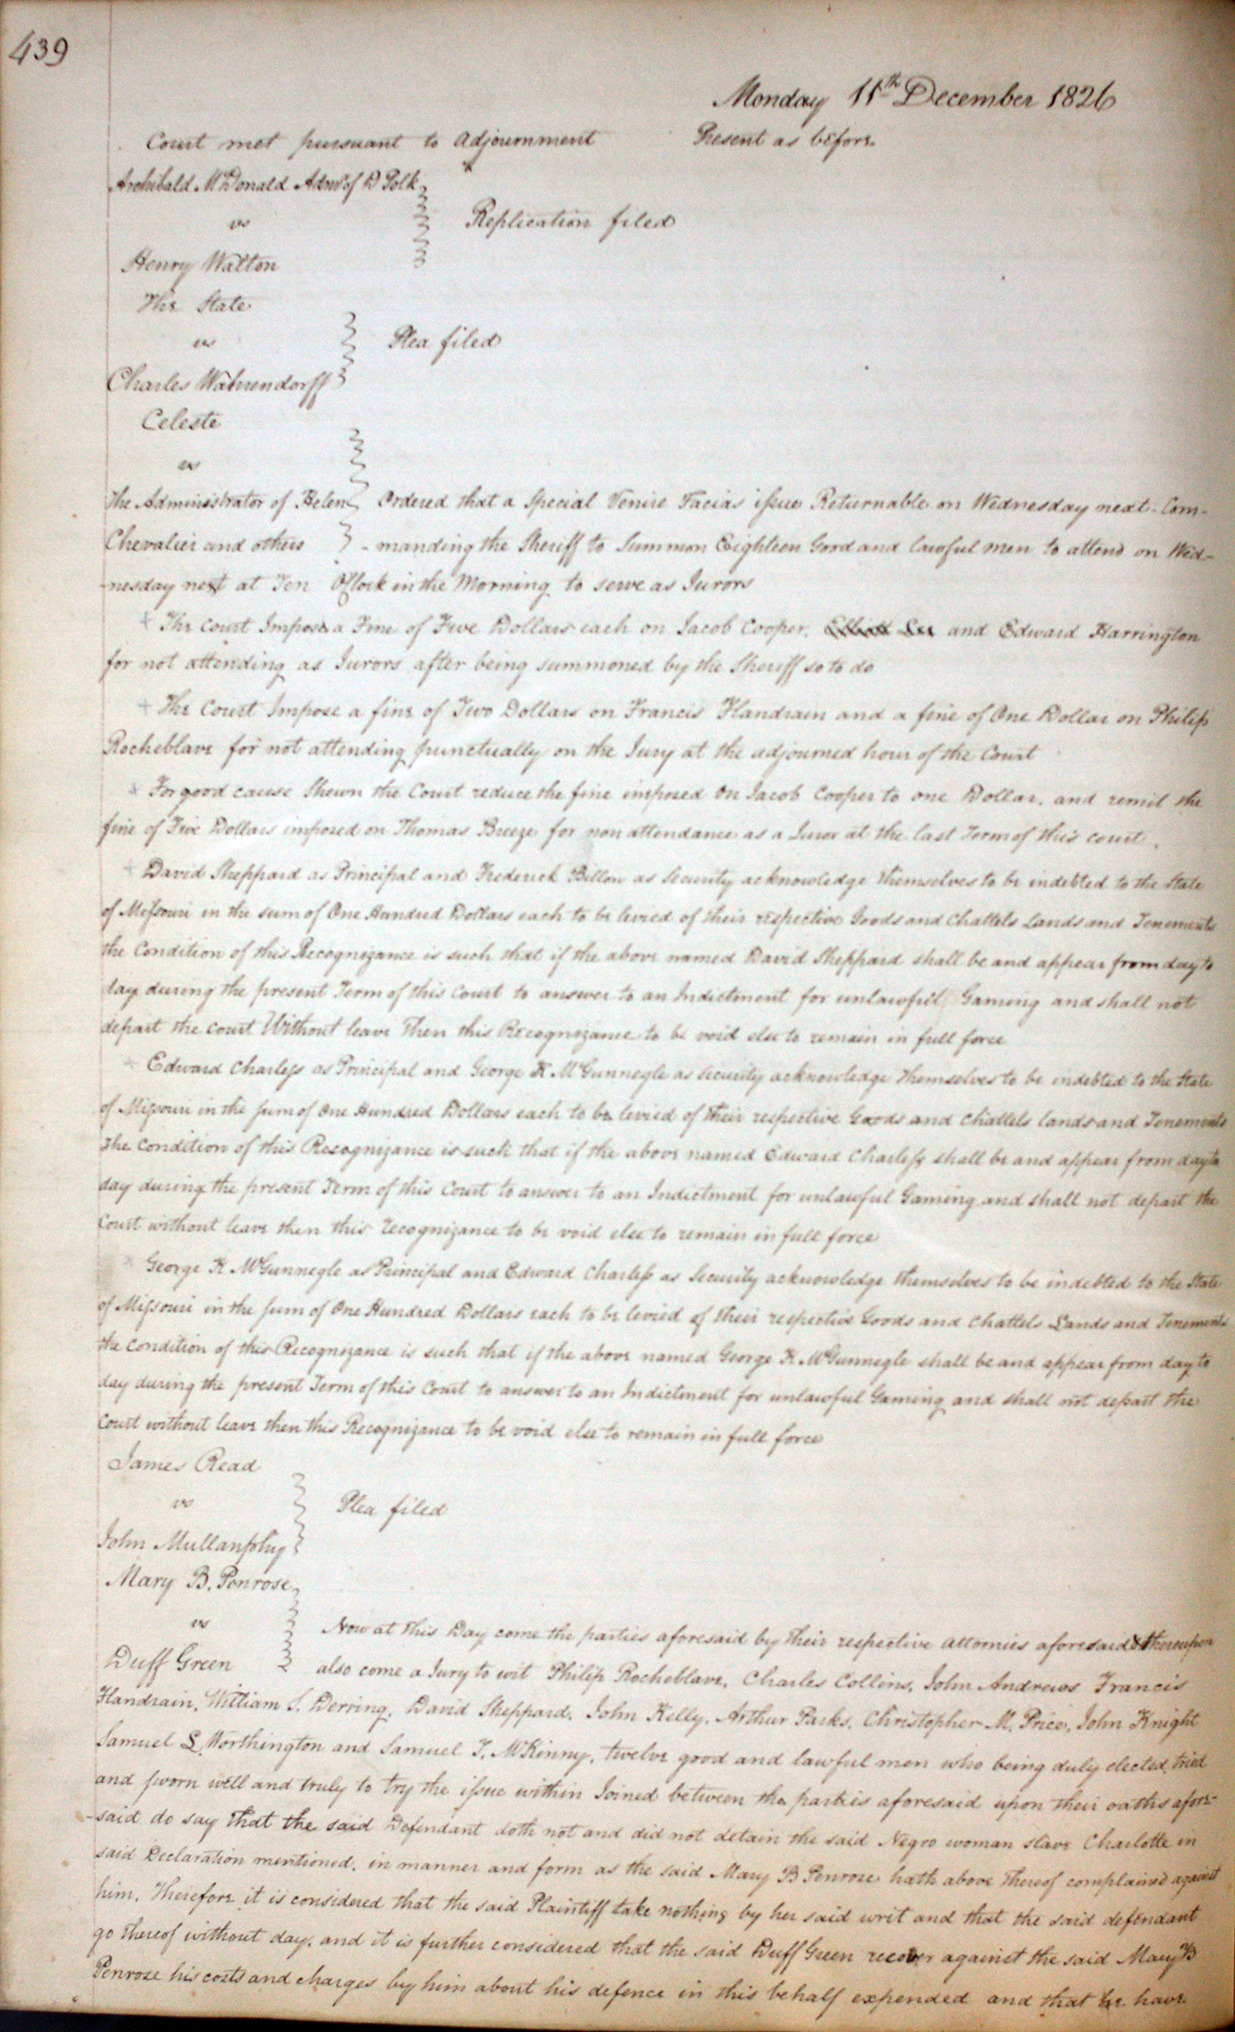 439
Monday 11th December 1826
Court met pursuant to Adjournment Present as before
Archibald McDonald Admr of D Polk
vs Replication filed
Henry Walton
The State
vs Plea filed
Charles Wahrendorff
Celeste
vs
The Administrator of Helen Ordered that a Special Venire Facias issue Returnable on Wednesday next. Com-
Chevalier and others - manding the Sheriff to Summon Eighteen Good and lawful men to attend on Wed-
-nesday next at Ten OClock in the Morning to serve as Jurors
+ The Court Impose a Fine of Five Dollars each on Jacob Cooper, and Edward Harrington
for not attending as Jurors after being summoned by the Sheriff so to do
+ The Court Impose a fine of Two Dollars on Francis Handrain and a fine of One Dollar on Philip
Rocheblave for not attending punctually on the Jury at the adjourned hour of the Court
+ For good cause Shewn the Court reduce the fine imposed on Jacob Cooper to one Dollar, and remit the
fine of Five Dollars imposed on Thomas Breeze for non attendance as a Juror at the last Term of this court.
+ David Sheppard as Principal and Frederick Billon as Security acknowledge themselves to be indebted to the State
of Missouri in the sum of One Hundred Dollars each to be levied of their respective Goods and Chattels Lands and Tenements
the Condition of this Recognizance is such that if the above named David Sheppard shall be and appear from day to
day during the present Term of this Court to answer to an Indictment for unlawful Gaming and shall not
depart the court Without leave then this Recognizance to be void else to remain in full force
+ Edward Charless as Principal and George K McGunnegle as Security acknowledge themselves to be indebted to the State
of Missouri in the sum of One Hundred Dollars each to be levied of their respective Goods and Chattels lands and Tenements
The Condition of this Recognizance is such that if the above named Edward Charless shall be and appear from day to
day during the present Term of this Court to answer to an Indictment for unlawful Gaming and shall not depart the
Court without leave then this recognizance to be void else to remain in full force
+ George K McGunnegle as Principal and Edward Charless as Security acknowledge themselves to be indebted to the State
of Missouri in the sum of One Hundred Dollars each to be levied of their respective Goods and chattels Lands and Tenements
the Condition of this Recognizance is such that if the above named George K McGunnegle shall be and appear from day to
day during the present Term of this Court to answer to an Indictment for unlawful Gaming and shall not depart the
Court without leave then this Recognizance to be void else to remain in full force
James Read
vs Plea filed
John Mullanphy
Mary B. Penrose
vs Now at this Day come the parties aforesaid by their respective attornies aforesaid & thereupon
Duff Green also come a Jury to wit Philip Rocheblave, Charles Collins, John Andrews Francis
Handrain, William S. Derring, David Sheppard, John Kelly, Arthur Parks, Christopher M. Price, John Knight
Samuel L Worthington and Samuel T. McKinny, twelve good and lawful men who being duly elected, tried
and sworn well and truly to try the issue within Joined between the parties aforesaid upon their oaths afore-
-said do say that the said Defendant doth not and did not detain the said Negro woman slave Charlotte in
said Declaration mentioned, in manner and form as the said Mary B Penrose hath above thereof complained against
him, Therefore it is considered that the said Plaintiff take nothing by her said writ and that the said defendant
go thereof without day, and it is further considered that the said Duff Green recover against the said Mary B
Penrose his costs and charges by him about his defence in this behalf expended and that he have